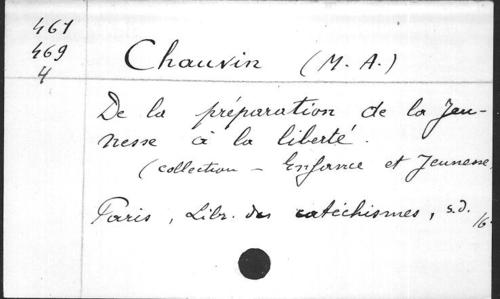 461
469
4
Chauvin (M. A.)
De la préparation de la Jeu-
nesse à la liberté.
(collection - Enfance et Jeunesse
Paris, Libr. des catéchismes, s.d.
16